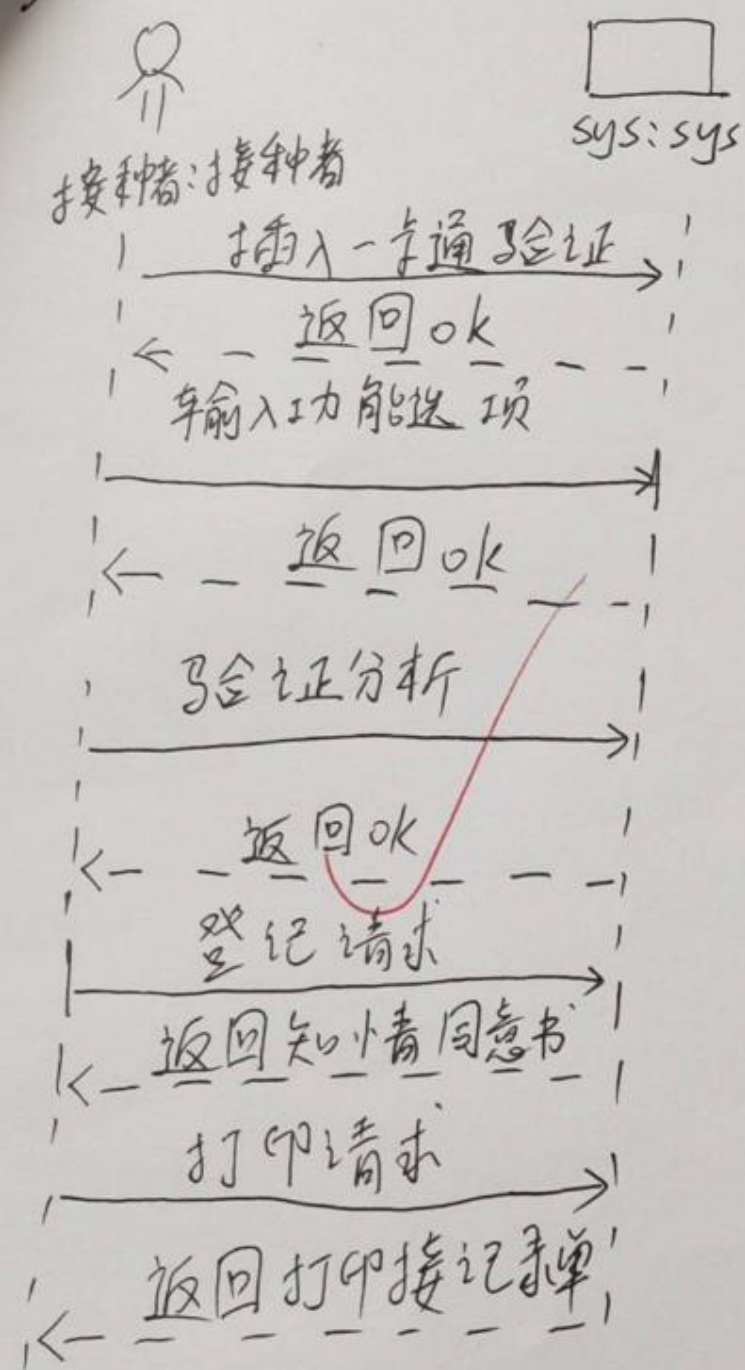 sys:sys
接种者:接种者
插入一卡通验证
返回ok
输入功能选项
返回ok
验证分析
返回ok
登记请求
返回知情同意书
打印请求
返回打印接记录单